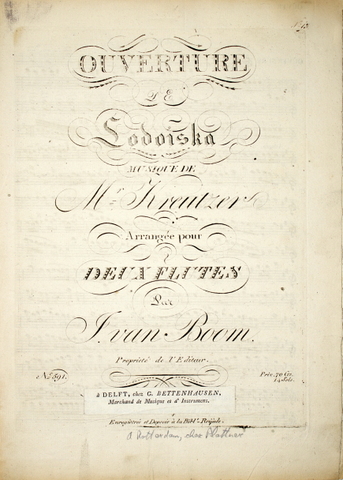 OUVERTURE
DE
Lodoïska
MUSIQUE DE
Mr. Kreutzer
Arrangée pour
DEUX FLUTES
Par
J. van Boom.
Propriété de l'Editeur.
No. 591.
Prix. 70 Cs.
14 Sols.
à DELFT, chez G. BETTENHAUSEN,
Marchand de Musique et d'Instrumens.
Enregistrée et Deposée à la Bibl. Royale.
a Rotterdam, chez Plattner